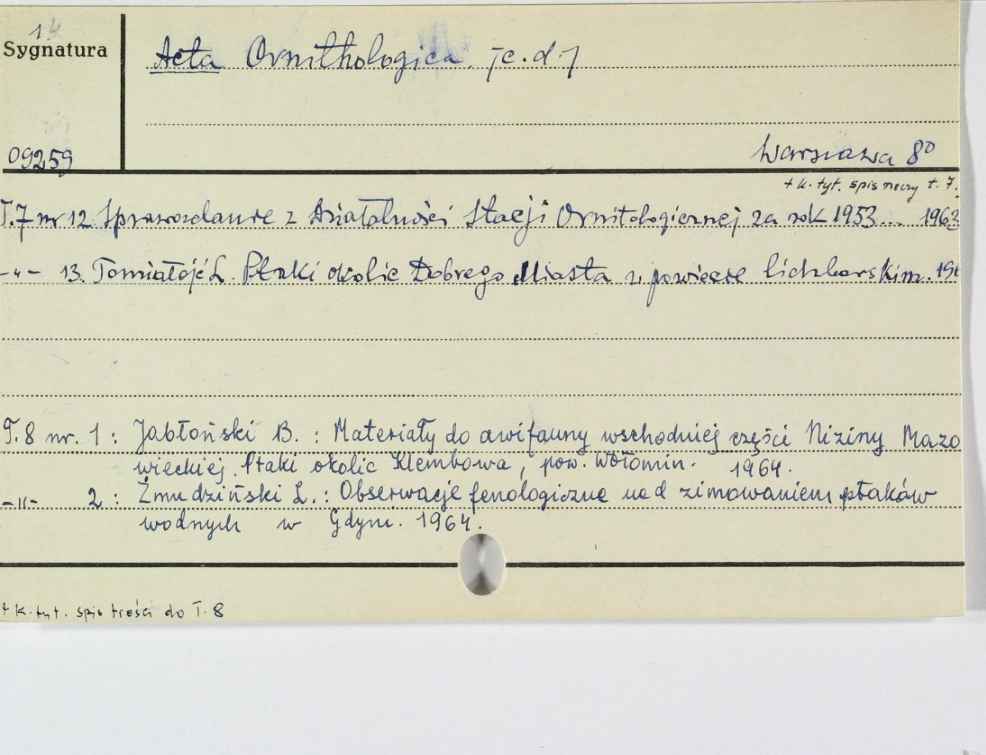 14
Sygnatura
Acta Ornithologica. [c.d.]
09259
Warszawa 8º
+ k. tyt. spis rzeczy t. 7.
T.7 nr 12. Sprawozdanie z Działalności Stacji Ornitologicznej za rok 1953... 1963
-"- 13. Tomiałojć L. Ptaki okolic Dobrego Miasta w powiecie lidzbarskim. 196
T.8 nr. 1 : Jabłoński B. : Materiały do awifauny wschodniej części Niziny Mazo
wieckiej. Ptaki okolic Klembowa, pow. Wołomin. 1964.
-"- 2 : Żmudziński L. : Obserwacje fenologiczne nad zimowaniem ptaków
wodnych w Gdyni. 1964.
+ k. tyt. spis treści do T. 8